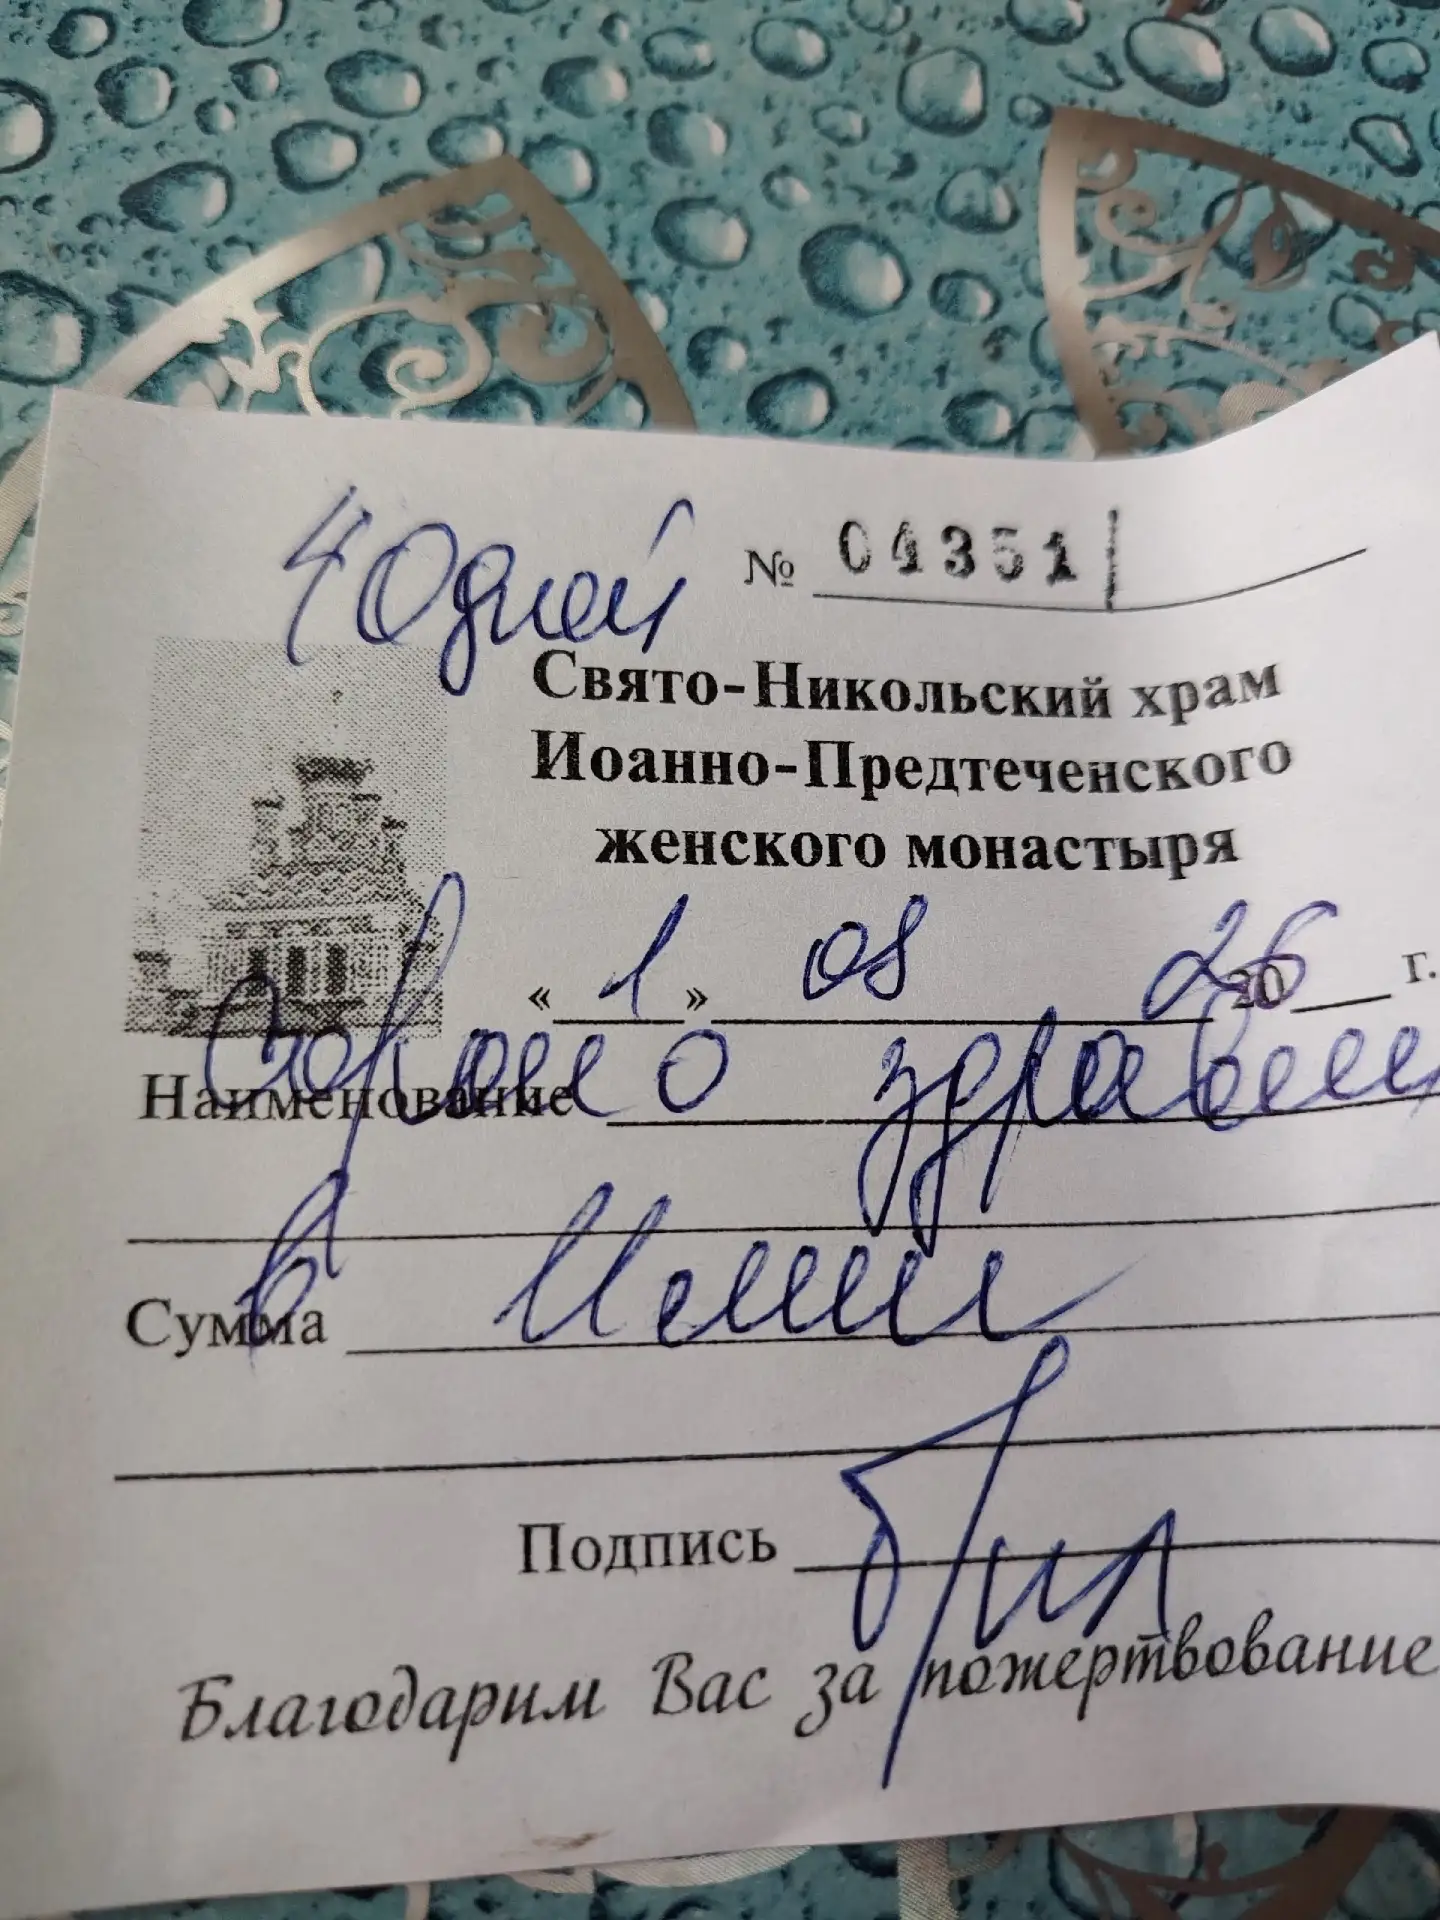 40 дней
№ 04351
Свято-Никольский храм
Иоанно-Предтеченского
женского монастыря
« 1 » 08 2026 г.
Наименование о здравии
Сумма
Подпись
Благодарим Вас за пожертвование